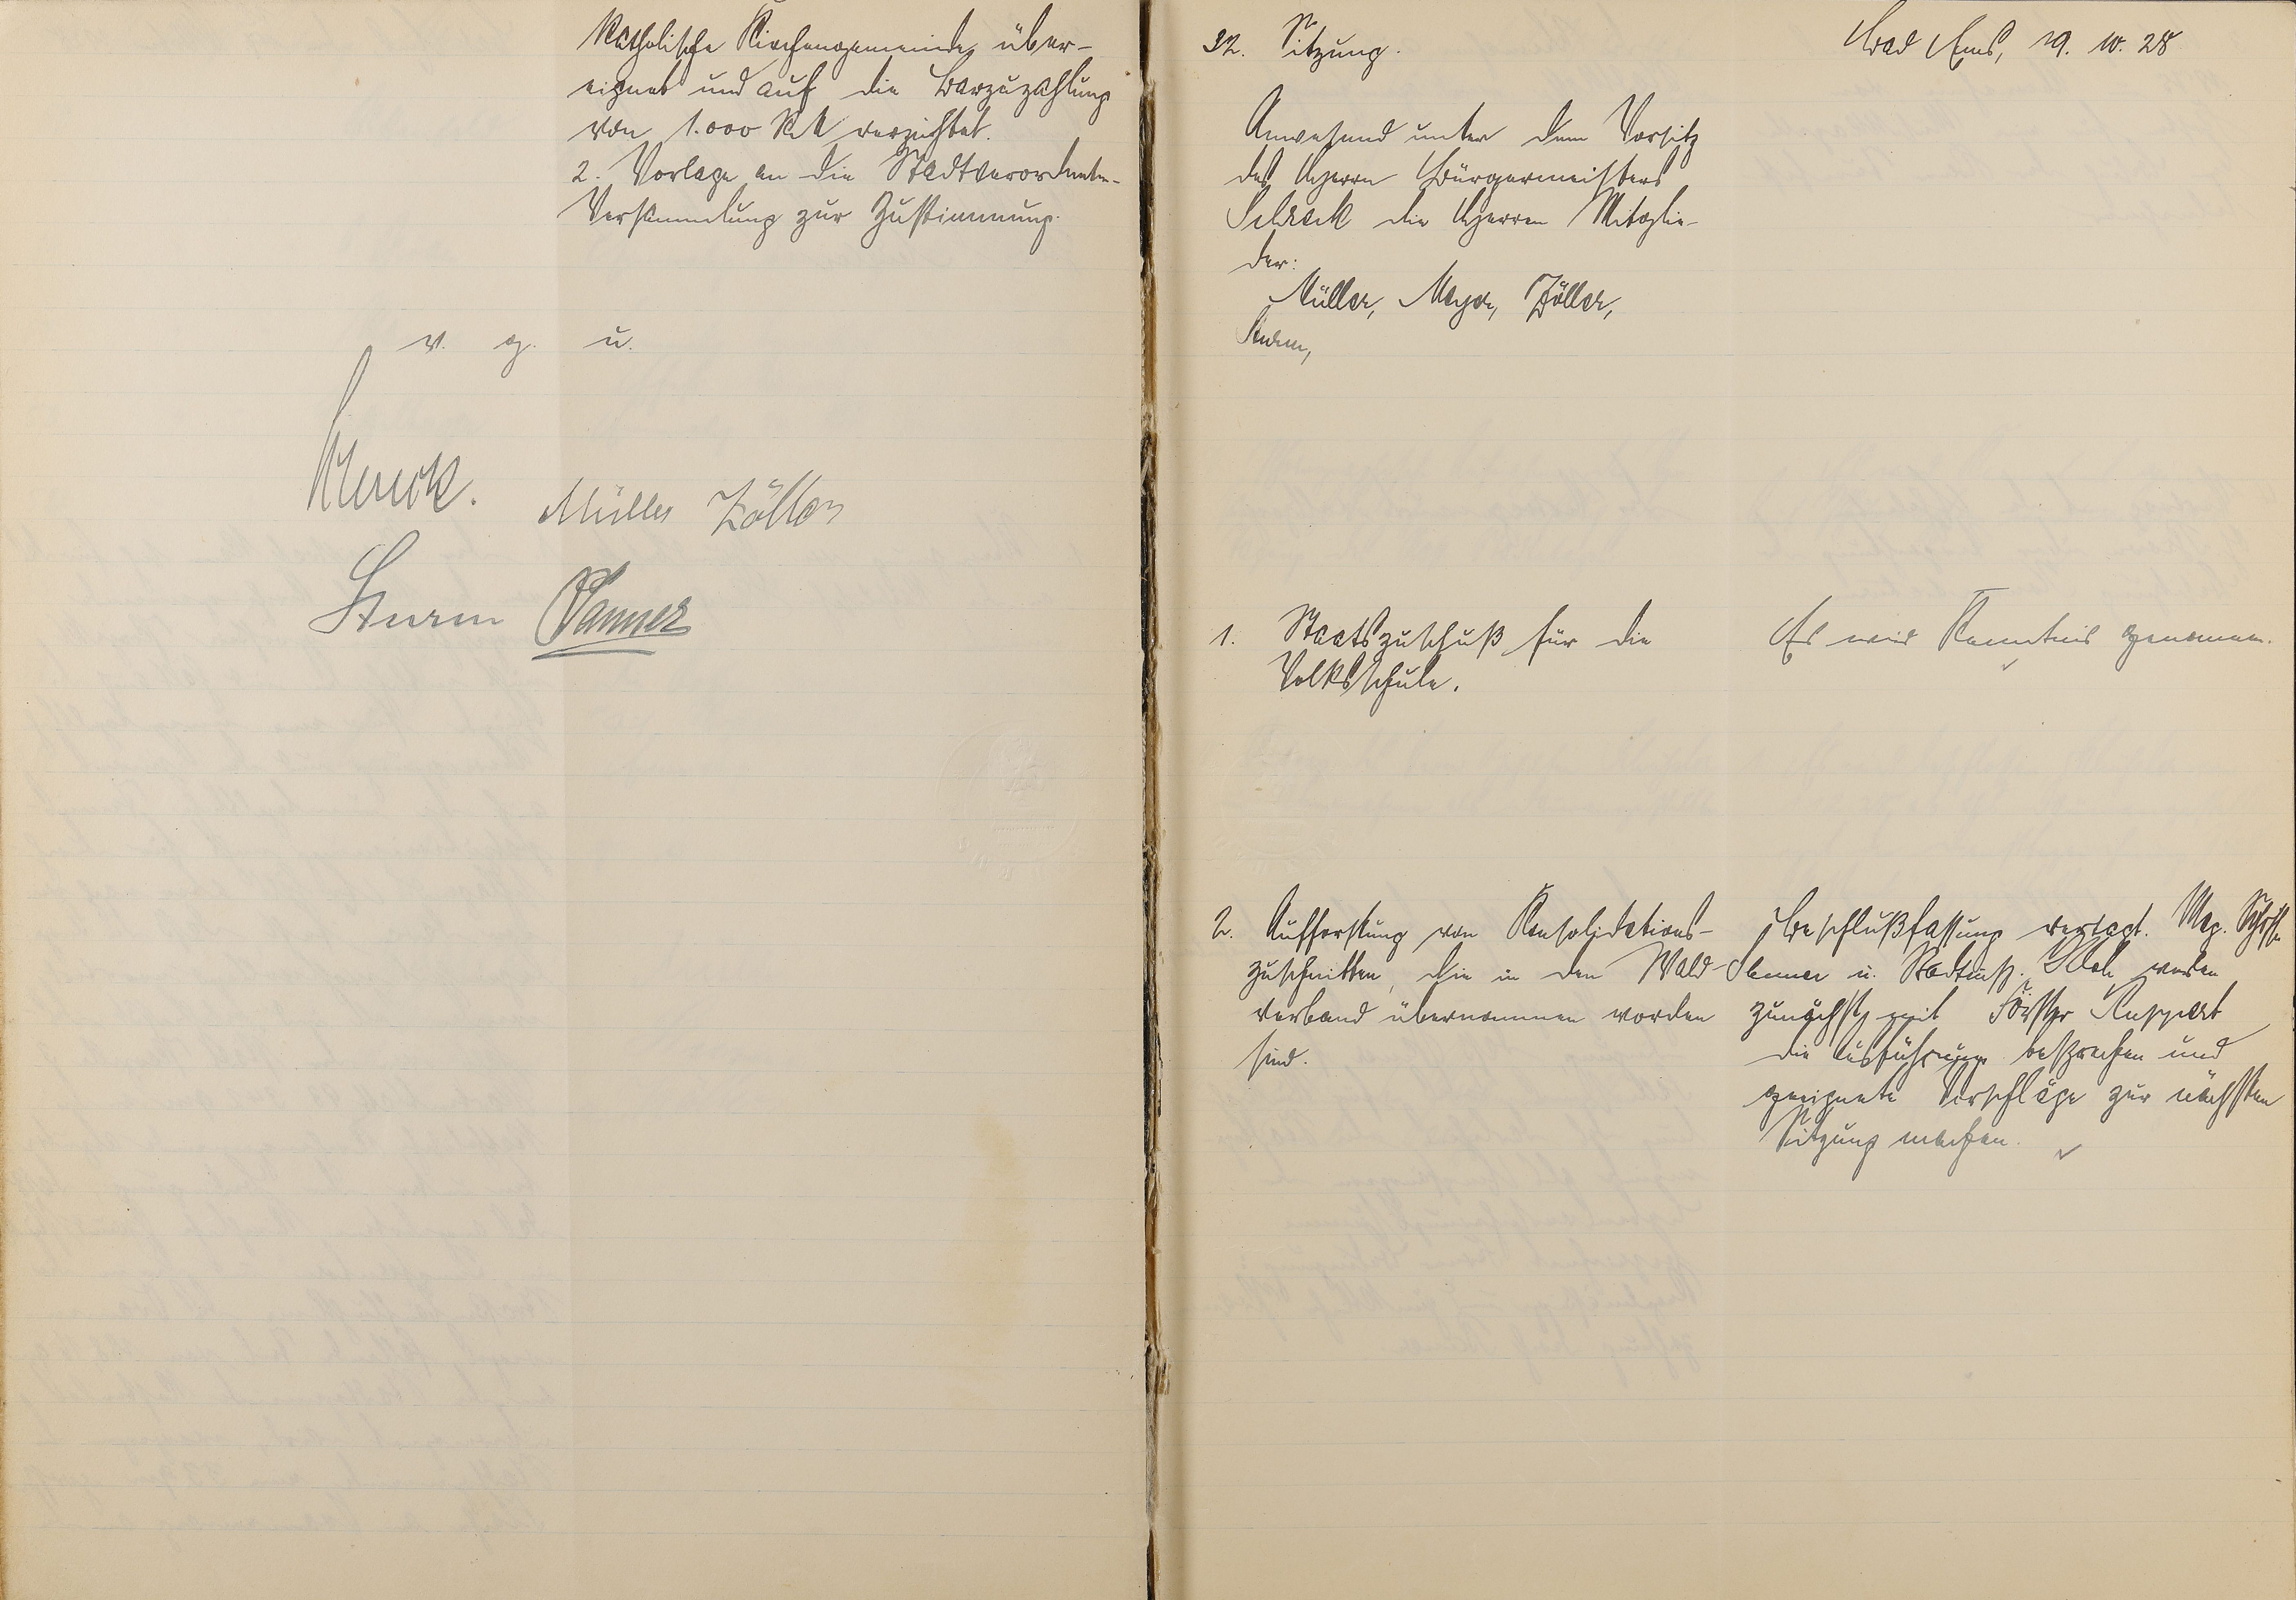 Katholische Kirchengemeinde über-
eignet und auf die Barzuzahlung
von 1.000 RM verzichtet.
2. Vorlage an die Stadtverordneten-
Versammlung zur Zustimmung.
v. g. u.
Müller Zöller
Sturm
32. Sitzung.
Bad Ems, 19. 10. 28
Anwesend unter dem Vorsitz
des Herrn Bürgermeisters
Schreck die Herren Mitglie-
der:
Müller, Meyer, Zöller,
Sturm,
1. Staatszuschuß für die
Volksschule.
Es wird Kenntnis genommen.
2. Aufforstung von Konsolidations-
zuschnitten, die in den Wald-
verband übernommen worden
sind.
Beschlußfassung vertagt. Mag. Schöffe
u. werden
zunächst mit Förster Ruppert
die Ausführung besprechen und
geeignete Vorschläge zur nächsten
Sitzung machen.